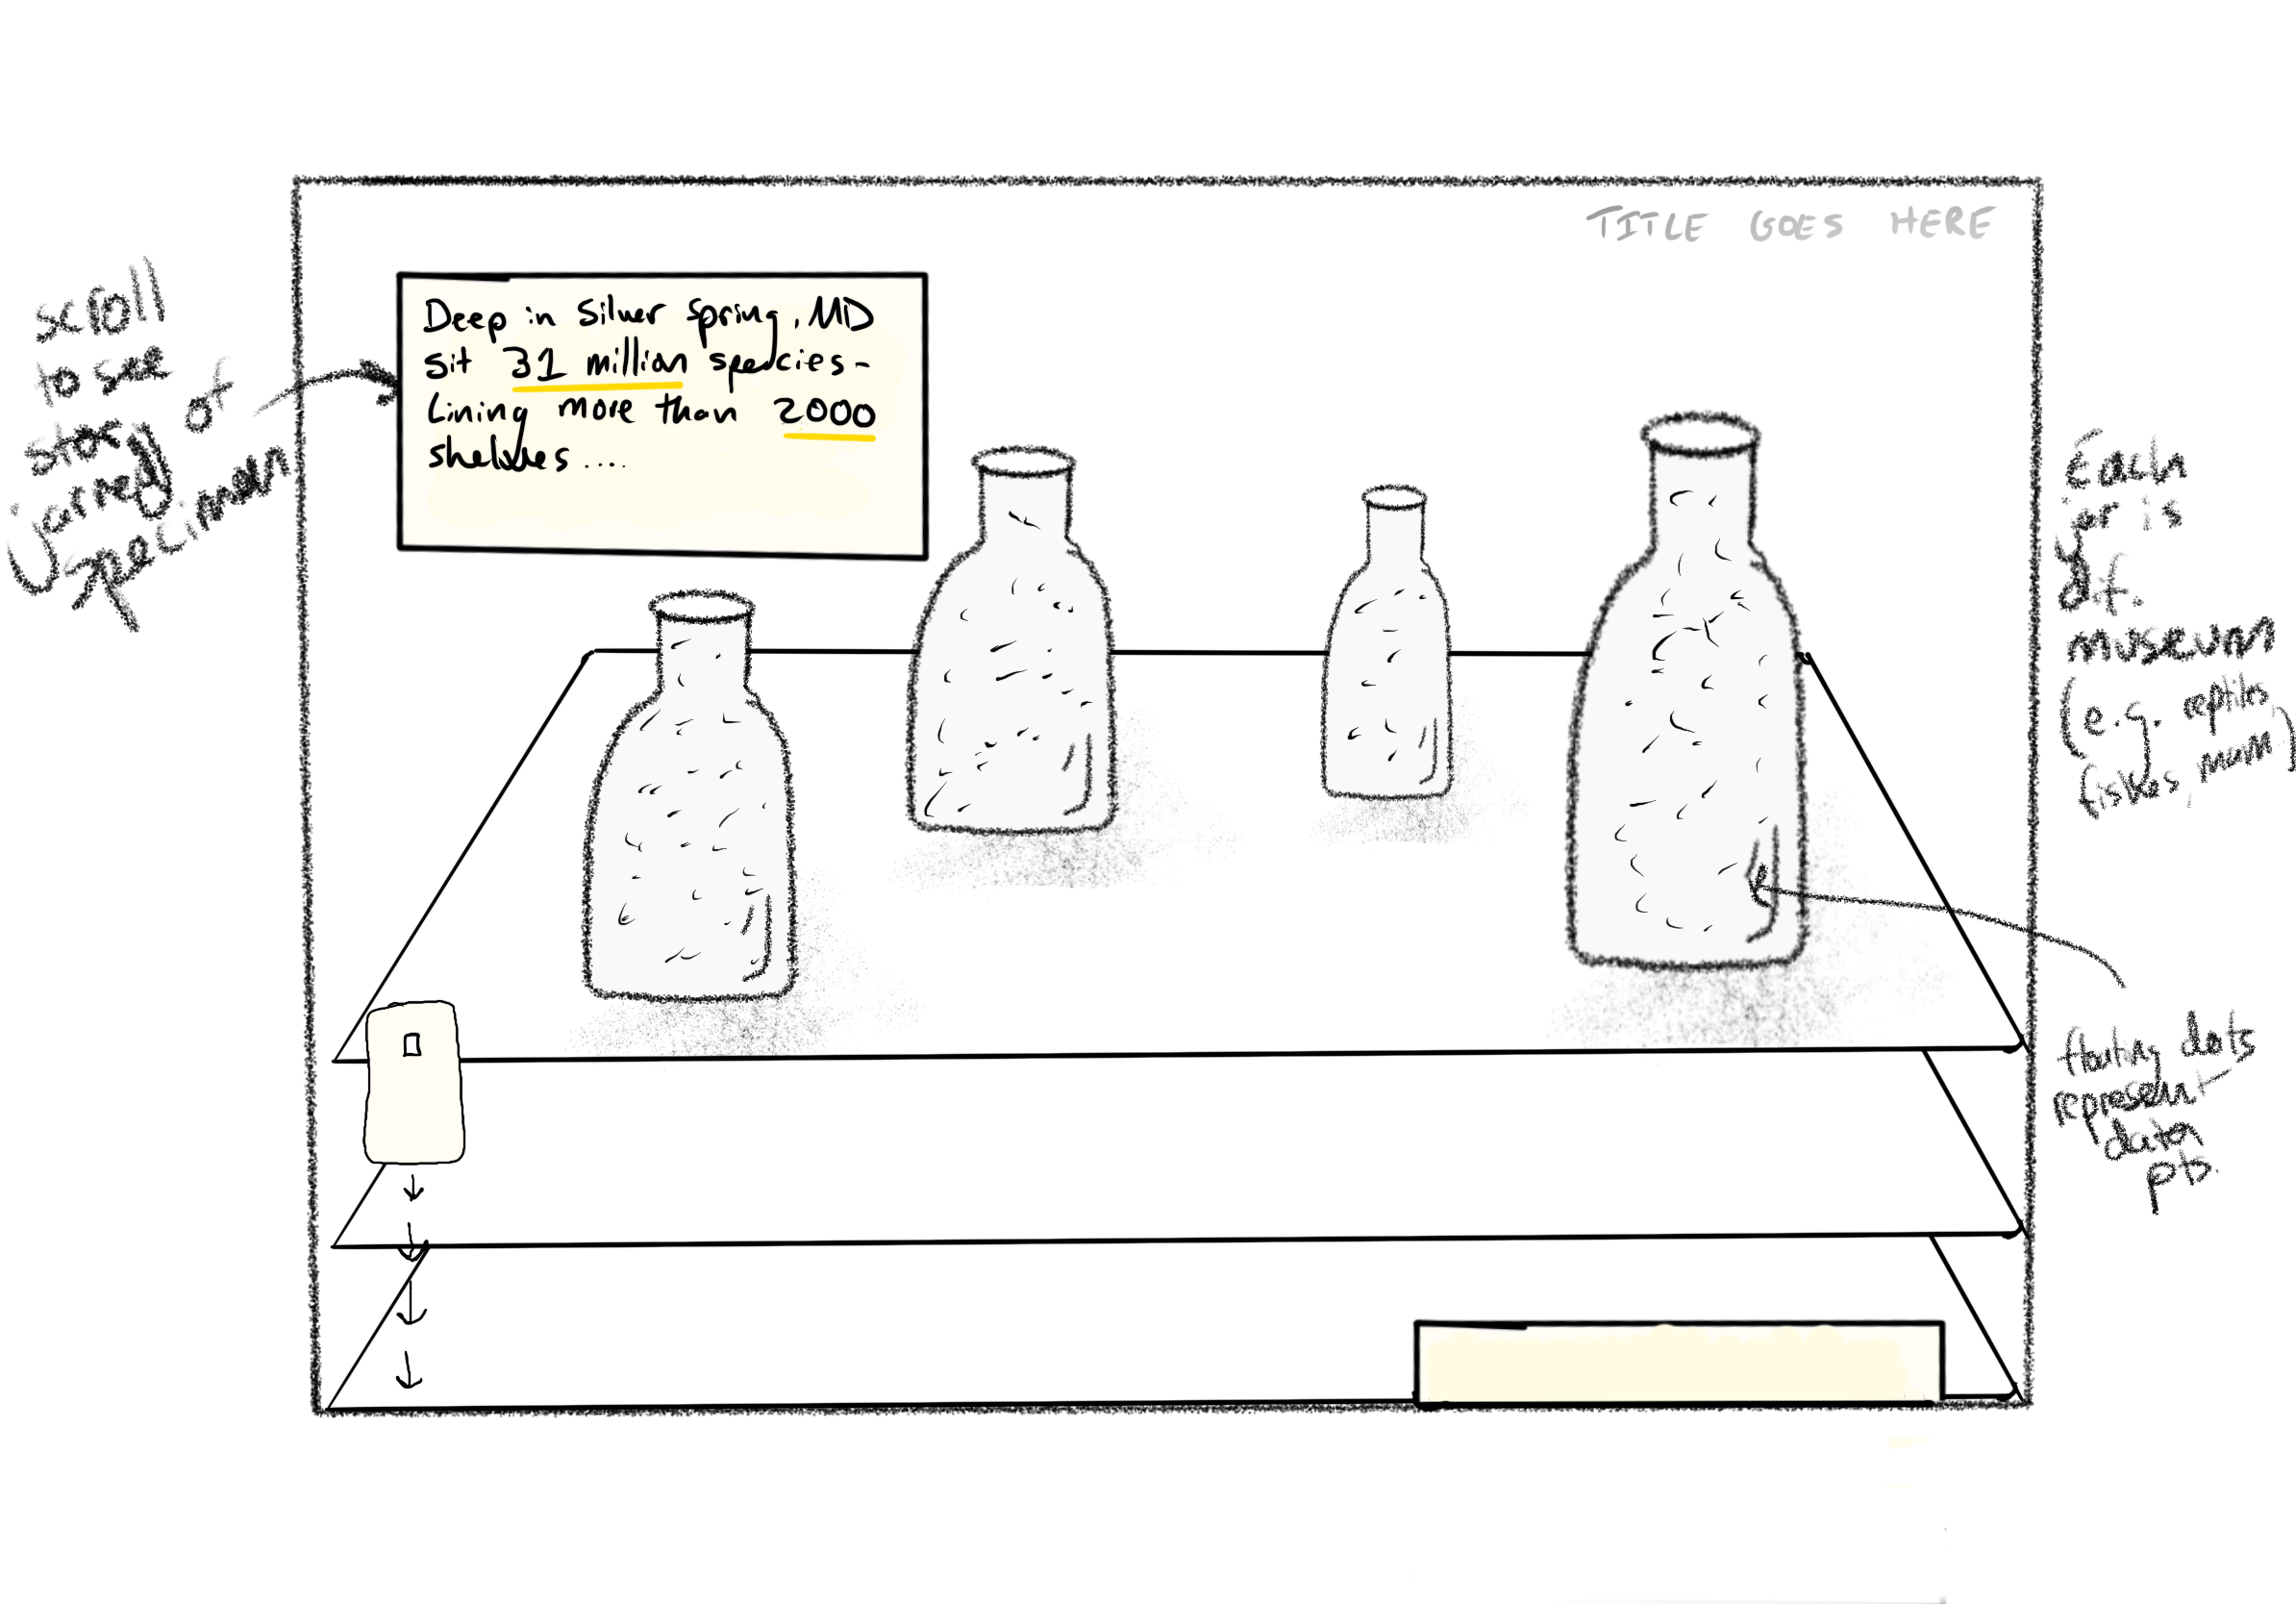 TITLE GOES HERE
scroll
to see
story of
jarred
specimen
Deep in Silver Spring, MD
sit 31 million species -
Lining more than 2000
shelves ....
Each
jar is
dif.
museum
(e.g. reptiles,
fishes, mam)
floating dots
represent
data
pts.